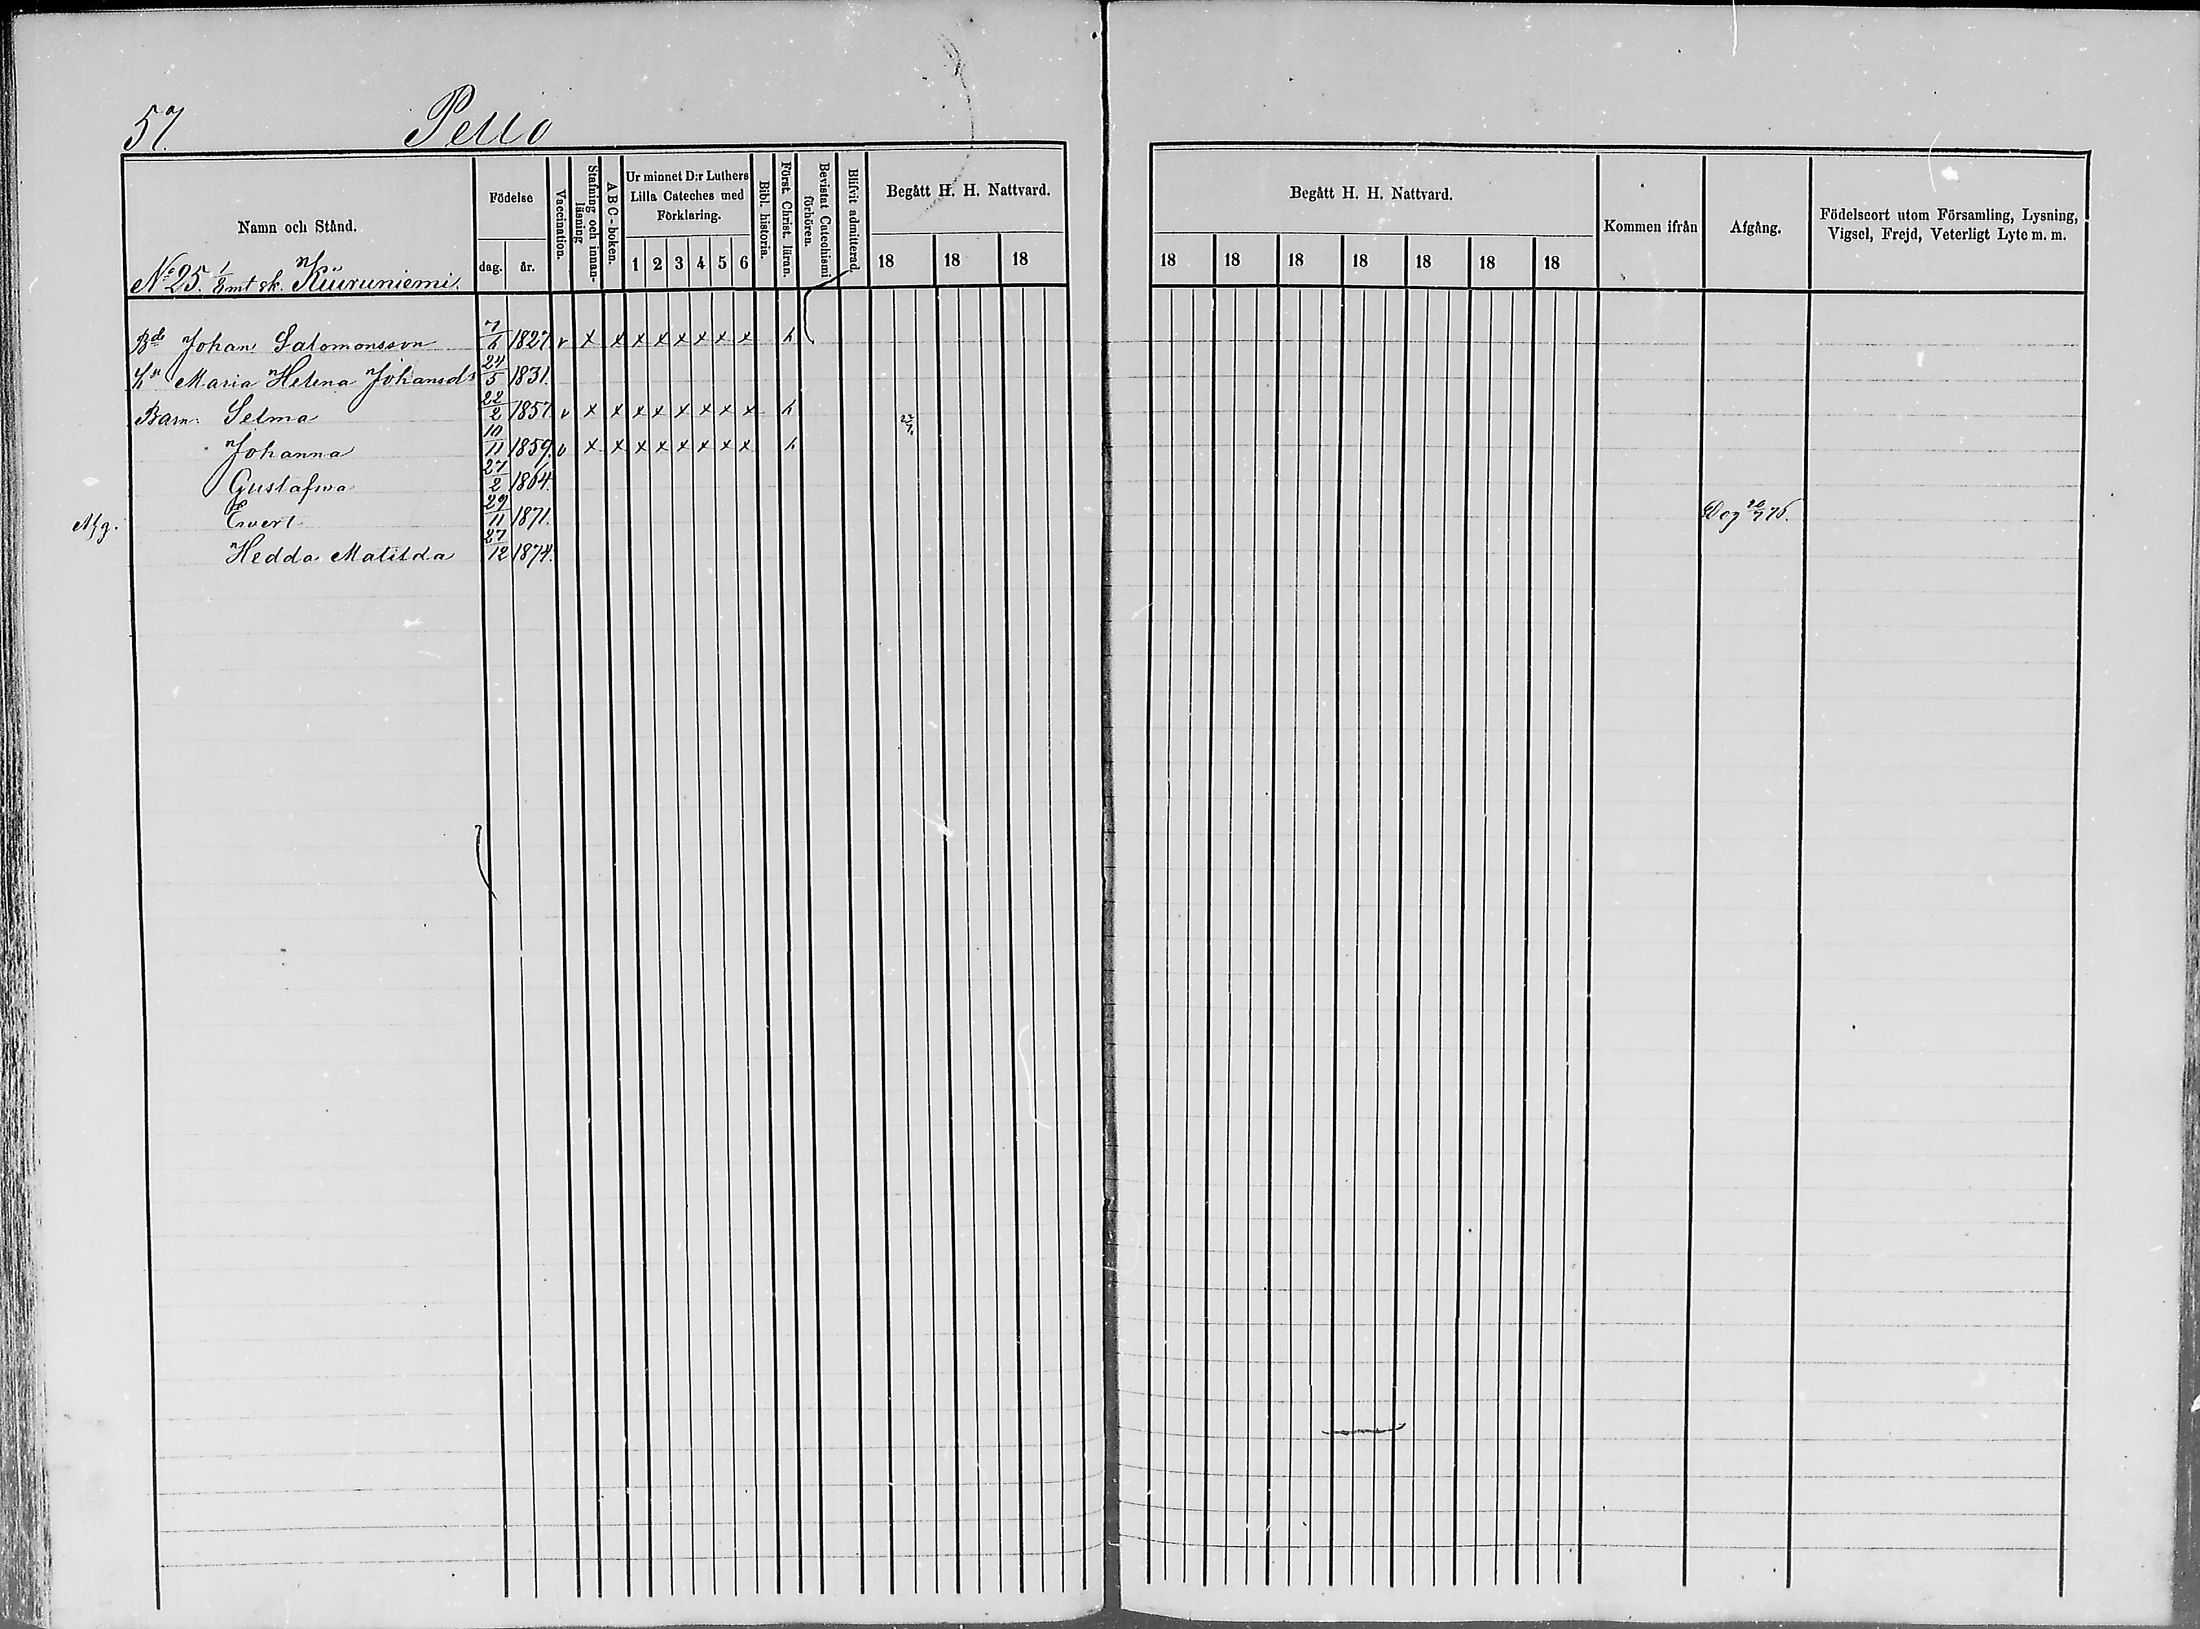 57. Pello
Namn och Stånd. Födelse dag. år. Vaccination. Stafning och innan-läsning A B C-boken. Ur minnet D:r Luthers Lilla Cateches med Förklaring. 1 2 3 4 5 6 Bibl. historia. Först. Christ. läran. Bevistat Catechismi förhören. Blifvit admitterad. Begått H. H. Nattvard. 18 18 18
Begått H. H. Nattvard. 18 18 18 18 18 18 18 Kommen ifrån Afgång. Födelseort utom Församling, Lysning, Vigsel, Frejd, Veterligt Lyte m. m.
No 25. 1/8 mt sk. Kiuruniemi.
Bde Johan Salomonsson 7/6 1827 v x x x x x x x x h
Hu Maria Helena Johansdr 24/5 1831.
Barn: Selma 22/2 1857. v x x x x x x x x h
Johanna 10/11 1859. v x x x x x x x x h
Gustafwa 27/2 1864.
Afg. Ewert 29/11 1871.
Hedda Matilda 27/12 1874.